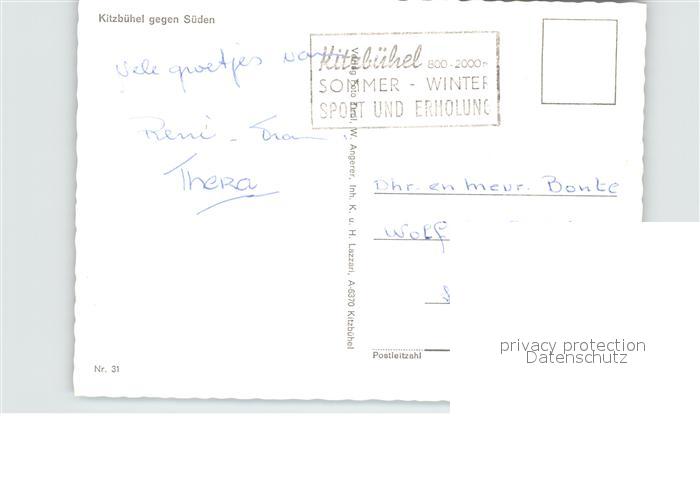 Kitzbühel gegen Süden
Vele groetjes van
René - 
Thera
Kitzbühel 800-2000m
SOMMER - WINTER
SPORT UND ERHOLUNG
Verlag Foto W. Angerer, Inh. K. u. H. Lazzari, A-6370 Kitzbühel
Dhr. en mevr. Bonte
Wolf
Postleitzahl
Nr. 31
privacy protection
Datenschutz